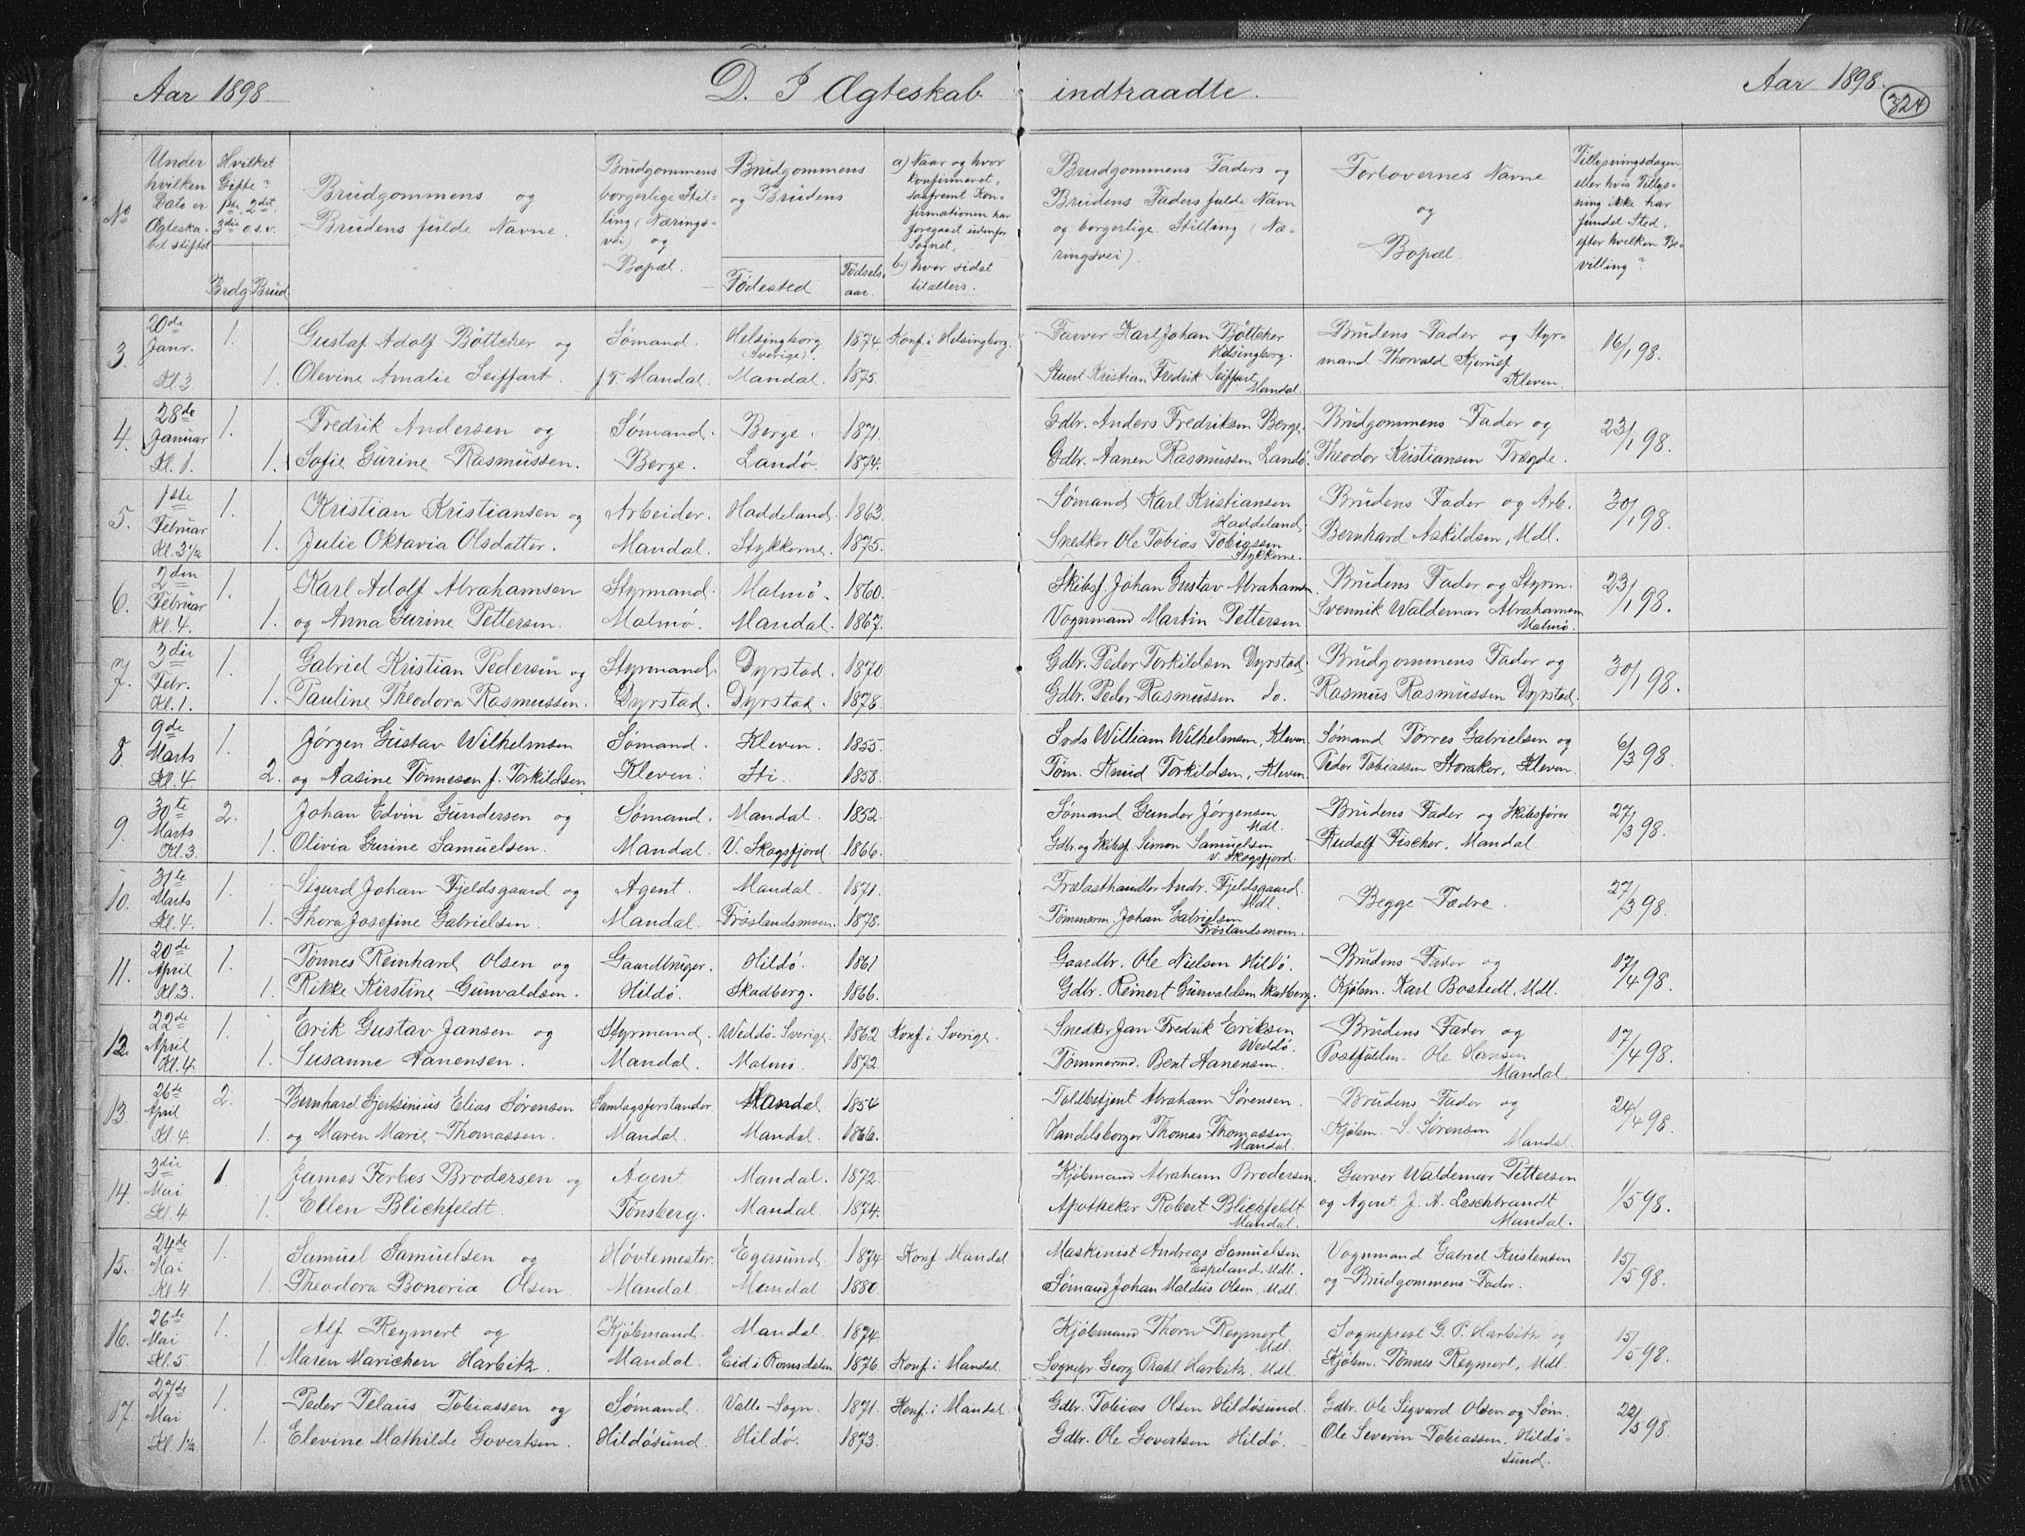 Aar 1898. D. I Ægteskab indtraadte. Aar 1898. 324
No
Under hvilken Dato er Ægteskabet stiftet
Hvilket Gifte? 1ste, 2det, 3die o.s.v.
Brdg. Brud
Brudgommens og Brudens fulde Navne.
Brudgommens borgerlige Stilling (Næringsvei) og Bopæl.
Brudgommens og Brudens
Fødested
Fødselsaar.
a) Naar og hvor konfirmeret, saafremt Konfirmationen har foregaaet udenfor Sognet.
b) hvor sidst tilalters.
Brudgommens Faders og Brudens Faders fulde Navn og borgerlige Stilling (Næringsvei).
Forlovernes Navne og Bopæl.
Tillysningsdagen eller hvis Tillysning ikke har fundet Sted, efter hvilken Bevilling?
3. 20de Janr. Kl. 3 1. Gustaf Adolf Böttcker og Sømand. Helsingborg (Sverige). 1874. Konf. i Helsingborg. Farver Karl Johan Böttcker Helsingborg. Brudens Fader og Styrmand Thorvald Kleven. 16/1 98.
1. Olevine Amalie Seiffart. f. T. Mandal. Mandal. 1875. Stuert Kristian Fredrik Seiffart, Mandal.
4. 28de Januar Kl. 1. 1. Fredrik Andersen og Sømand. Berge. 1871. Gdbr. Anders Fredriksen Berge. Brudgommens Fader og 23/1 98.
1. Sofie Gurine Rasmussen. Berge. Landø. 1874. Gdbr. Aanen Rasmussen Landø. Theodor Kristiansen Trægde.
5. 1ste Februar Kl. 3½ 1. Kristian Kristiansen og Arbeider. Haddeland. 1863. Sømand Karl Kristiansen Haddeland. Brudens Fader og Arb. 30/1 98.
1. Julie Oktavia Olsdatter. Mandal. Stykkerne. 1875. Snedker Ole Tobias Tobiassen Stykkerne. Bernhard Askildsen, Mdl.
6. 2den Februar Kl. 4. 1. Karl Adolf Abrahamsen Styrmand. Malmø. 1860. Skibsf. Johan Gustav Abrahamsen Brudens Fader og Styrm. 23/1 98.
1. og Anna Gurine Pettersen. Malmø. Mandal. 1867. Vognmand Martin Pettersen Svennik Waldemar Abrahamsen Malmø.
7. 3die Febr. Kl. 1. 1. Gabriel Kristian Pedersen og Styrmand. Dyrstad. 1870 Gdbr. Peder Torkildsen Dyrstad. Brudgommens Fader og 30/1 98.
1. Pauline Theodora Rasmussen. Dyrstad. Dyrstad. 1878. Gdbr. Peder Rasmussen do. Rasmus Rasmussen Dyrstad.
8. 9de Marts Kl. 4. 1. Jørgen Gustav Wilhelmsen Sømand. Kleven. 1855. Lods William Wilhelmsen, Kleven Sømand Tørres Gabrielsen og 6/3 98.
2. og Aasine Tønnesen f. Torkildsen Kleven. Ski. 1858. Tøm. Knud Torkildsen, Kleven Peder Tobiassen Storaker, Kleven.
9. 30te Marts Kl. 3. 2. Johan Edvin Gundersen og Sømand. Mandal. 1852. Sømand Gunder Jørgensen Mdl. Brudens Fader og Skibsfører 27/3 98.
1. Olivia Gurine Samuelsen. Mandal. V. Skogsfjord. 1866. Gdbr. og Skibsf. Simon Samuelsen V. Skogsfjord. Rudolf Fischer, Mandal
10. 31te Marts Kl. 4. 1. Sigurd Johan Fjeldsgaard og Agent. Mandal. 1871. Trælasthandler Andr. Fjeldsgaard. Mdl. Begge Fædre. 27/3 98.
1. Thora Josefine Gabrielsen. Mandal. Frøslandsmoen. 1878. Tømmerm. Johan Gabrielsen Frøslandsmoen.
11. 20de April Kl. 3. 1. Tønnes Reinhard Olsen og Gaardbruger. Hildø. 1861 Gaardbr. Ole Nielsen Hildø. Brudens Fader og 17/4 98.
1. Rikke Kirstine Gunvaldsen. Hildø. Skadberg. 1866. Gdbr. Reinert Gunvaldsen Skadberg. Kjøbm. Karl Bostedt, Mdl.
12. 22de April Kl. 4. 1. Erik Gustav Jansen og Styrmand. Weddö-Sverige 1862 Konf. i Sverige. Snedker Jan Fredrik Eriksen Weddö. Brudens Fader og 17/4 98.
1. Susanne Aanensen. Mandal. Malmø 1872. Tømmermd. Bent Aanensen. Postfuldm. Ole Hansen Mandal.
13. 26de April Kl. 4. 2. Bernhard Gjertsinius Elias Sørensen Samlagsforstander. Mandal 1854 Toldbetjent Abraham Sørensen. Brudens Fader og 24/4 98.
1. og Maren Marie Thomassen. Mandal. Mandal. 1866. Handelsborger Thomas Thomassen Mandal. Kjøbm. S. Sørensen Mandal.
14. 3die Mai Kl. 4 1. James Forbes Brodersen og Agent Mandal. 1872. Kjøbmand Abraham Brodersen. Garver Waldemar Pettersen 1/5 98.
1. Ellen Blichfeldt. Tønsberg. Mandal. 1874. Apotheker Robert Blichfeldt Mandal. og Agent J. A. Leschbrandt Mandal.
15. 24de Mai Kl. 4 1. Samuel Samuelsen og Høvlemester. Egersund. 1874 Konf. Mandal Maskinist Andreas Samuelsen Espeland, Mdl. Vognmand Gabriel Kristensen 15/5 98.
1. Theodora Bonoria Olsen. Mandal. Mandal 1880. Sømand Johan Maldus Olsen, Mdl. og Brudgommens Fader.
16. 26de Mai Kl. 5. 1. Alf Reymert og Kjøbmand. Mandal. 1874. Kjøbmand Thorn Reymert Mdl. Sogneprest G. P. Harbitz og 15/5 98.
1. Maren Maricken Harbitz. Mandal. Eid i Romsdalen 1876. Konf. i Mandal. Sognepr. Georg Prahl Harbitz, Mdl. Kjøbm. Tønnes Reymert, Mdl.
17. 27de Mai Kl. 1½. 1. Peder Pelaus Tobiassen og Sømand. Valle Sogn. 1871. Konf. i Mandal. Gdbr. Tobias Olsen Hildøsund. Gdbr. Ole Sigvard Olsen og Søm. 22/5 98.
1. Elevine Mathilde Govertsen. Hildøsund. Hildø. 1873. Gdbr. Ole Govertsen Hildø. Ole Severin Tobiassen, Hildøsund.